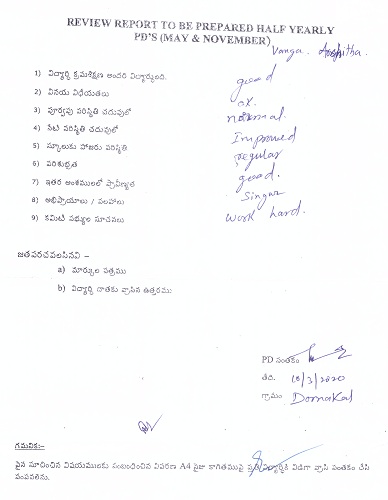 REVIEW REPORT TO BE PREPARED HALF YEARLY
PD'S (MAY & NOVEMBER)
Vanga.
1) విద్యార్థి క్రమశిక్షణ అందరి విద్యార్థులది. good
2) వినయ విధేయతలు ex.
3) పూర్వపు పరిస్థితి చదువులో normal.
4) నేటి పరిస్థితి చదువులో Improved
5) స్కూలుకు హాజరు పరిస్థితి regular
6) పరిశుభ్రత good.
7) ఇతర అంశములలో ప్రావీణ్యత Singar
8) అభిప్రాయాలు / సలహాలు work hard.
9) కమిటి సభ్యుల సూచనలు
జతపరచవలసినవి –
a) మార్కుల పత్రము
b) విద్యార్థి దాతకు వ్రాసిన ఉత్తరము
PD సంతకం
తేది. 10/3/2020
గ్రామం Dornakal
గమనిక:-
పైన సూచించిన విషయములకు సంబంధించిన వివరణ A4 సైజు కాగితముపై ప్రతి విద్యార్థికి విడిగా వ్రాసి సంతకం చేసి
పంపవలెను.